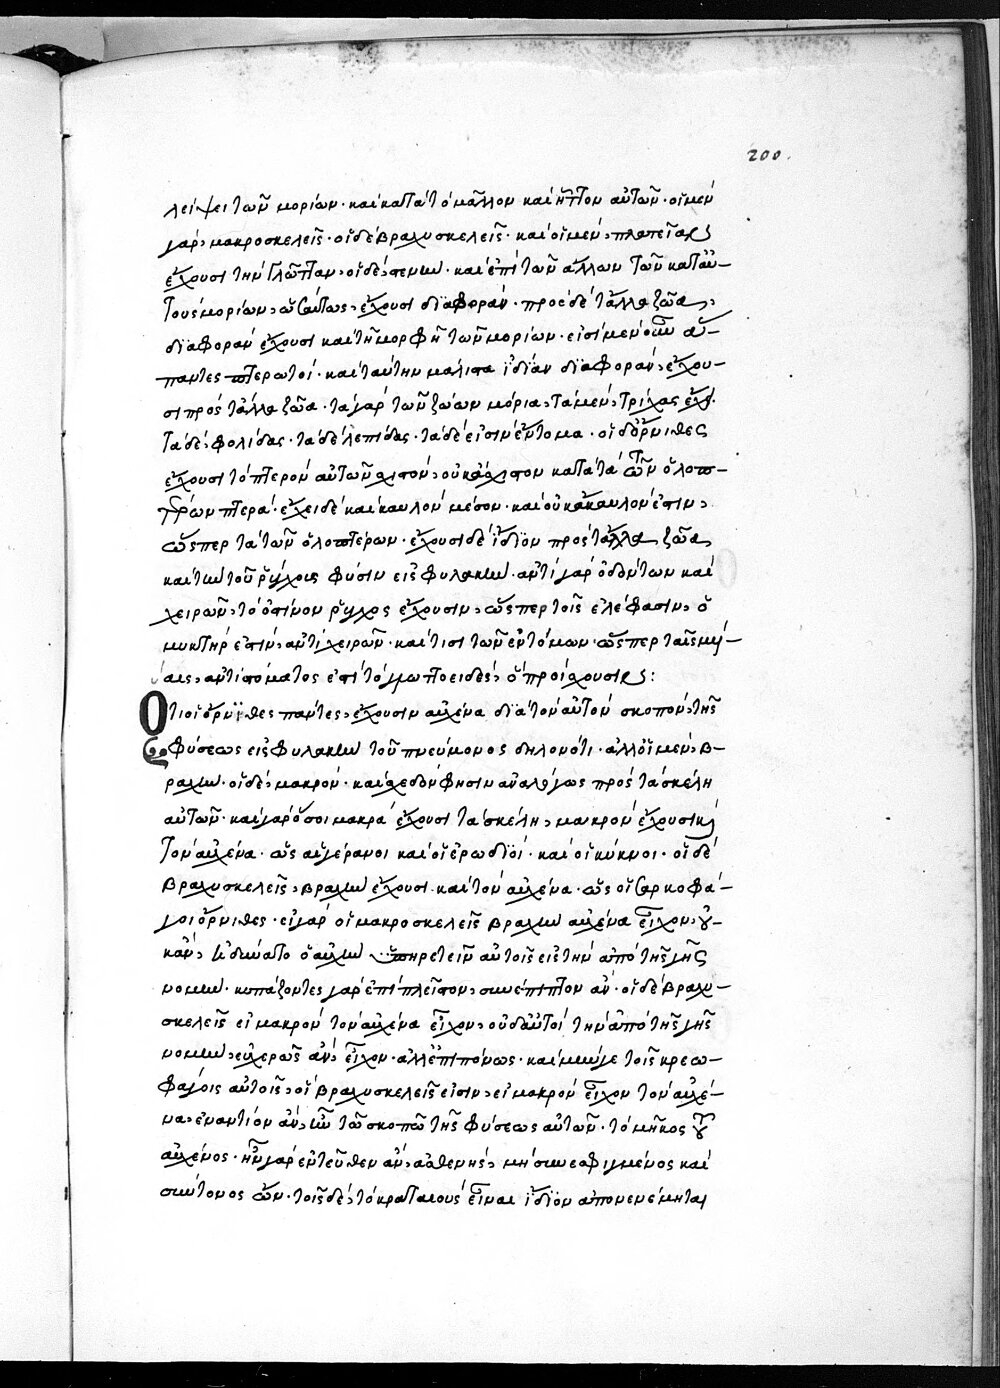 200.
λείψει τῶν μορίων· καὶ κατὰ τὸ μᾶλλον καὶ ἧττον αὐτῶν· οἱ μὲν
γὰρ, μακροσκελεῖς· οἱ δὲ βραχυσκελεῖς· καὶ οἱ μὲν, πλατεῖαν
ἔχουσι τὴν γλῶτταν, οἱ δὲ, στενήν· καὶ ἐπὶ τῶν ἄλλων τῶν κατ' αὐ-
τοὺς μορίων, ὡσαύτως, ἔχουσι διαφοράν· πρὸς δὲ τἄλλα ζῶα,
διαφορὰν ἔχουσι καὶ τῇ μορφῇ τῶν μορίων· εἰσὶ μὲν οὖν ἅ-
παντες πτερωτοί· καὶ ταύτην μάλιστα ἰδίαν διαφορὰν, ἔχου-
σι πρὸς τἄλλα ζῶα· τὰ γὰρ τῶν ζώων μόρια, τὰ μὲν, τρίχας ἔχει·
τὰ δὲ, φολίδας· τὰ δὲ λεπίδας· τὰ δέ εἰσιν ἔντομα· οἱ δ' ὄρνιθες
ἔχουσι τὸ πτερὸν αὐτῶν σχιστὸν, οὐκ ἄσχιστον κατὰ τὰ τῶν ὁλοπ-
τέρων πτερά· ἔχει δὲ καὶ καυλὸν μέσον· καὶ οὐκ ἄκαυλόν ἐστιν,
ὥσπερ τὰ τῶν ὁλοπτέρων· ἔχουσι δὲ ἴδιον πρὸς τἄλλα ζῶα,
καὶ τὴν τοῦ ῥύγχους φύσιν εἰς φυλακήν· ἀντὶ γὰρ ὀδόντων καὶ
χειρῶν, τὸ ὀστινον ῥύγχος ἔχουσιν, ὥσπερ τοῖς ἐλέφασιν, ὁ
μυκτήρ ἐστιν, ἀντὶ χειρῶν· καὶ τισι τῶν ἐντόμων· ὥσπερ ταῖς μυί-
αις, ἀντὶ στόματος ἐστὶ τὸ γλωττοειδὲς, ὃ προίσχουσιν:
Ὅτι οἱ ὄρνιθες πάντες, ἔχουσιν αὐχένα διὰ τὸν αὐτὸν σκοπὸν, τῆς
φύσεως εἰς φυλακὴν τοῦ πνεύμονος δηλονότι· ἀλλ' οἱ μὲν, β-
ραχὺν· οἱ δὲ, μακρόν· καὶ σχεδόν φησιν ἀναλόγως πρὸς τὰ σκέλη
αὐτῶν· καὶ γὰρ ὅσοι μακρὰ ἔχουσι τὰ σκέλη, μακρὸν ἔχουσι καὶ
τὸν αὐχένα· ὡς αἱ γέρανοι καὶ οἱ ἐρωδιοί· καὶ οἱ κύκνοι· οἱ δὲ
βραχυσκελεῖς, βραχὺν ἔχουσι καὶ τὸν αὐχένα· ὡς οἱ σαρκοφά-
γοι ὄρνιθες· εἰ γὰρ οἱ μακροσκελεῖς βραχὺν αὐχένα εἶχον, οὐ-
κ ἂν, ἐδύνατο ὁ αὐχὴν ὑπηρετεῖν αὐτοῖς εἰς τὴν ἀπὸ τῆς γῆς
νομήν· κυπάζοντες γὰρ ἐπὶ πλεῖστον, συνέπιπτον ἄν· οἱ δὲ βραχυ-
σκελεῖς εἰ μακρὸν τὸν αὐχένα εἶχον, οὐδ' αὐτοὶ τὴν ἀπὸ τῆς γῆς
νομὴν, εὐχερῶς ἂν, εἶχον· ἀλλ' ἐπιπόνως· καὶ μήν γε τοῖς κρεω-
φάγοις αὐτοῖς, οἳ βραχυσκελεῖς εἰσιν, εἰ μακρὸν εἶχον τὸν αὐχέ-
να, ἐναντίον ἂν, ἦν τῶ σκοπῶ τῆς φύσεως αὐτῶν· τὸ μῆκος τοῦ
αὐχένος· ἦν γὰρ ἐντεῦθεν ἂν, ἀσθενὴς, μὴ συνεσφιγμένος καὶ
σύντονος ὤν· τοῖς δὲ, τὸ κραταιοὺς εἶναι ἴδιον ἀπονενέμηται